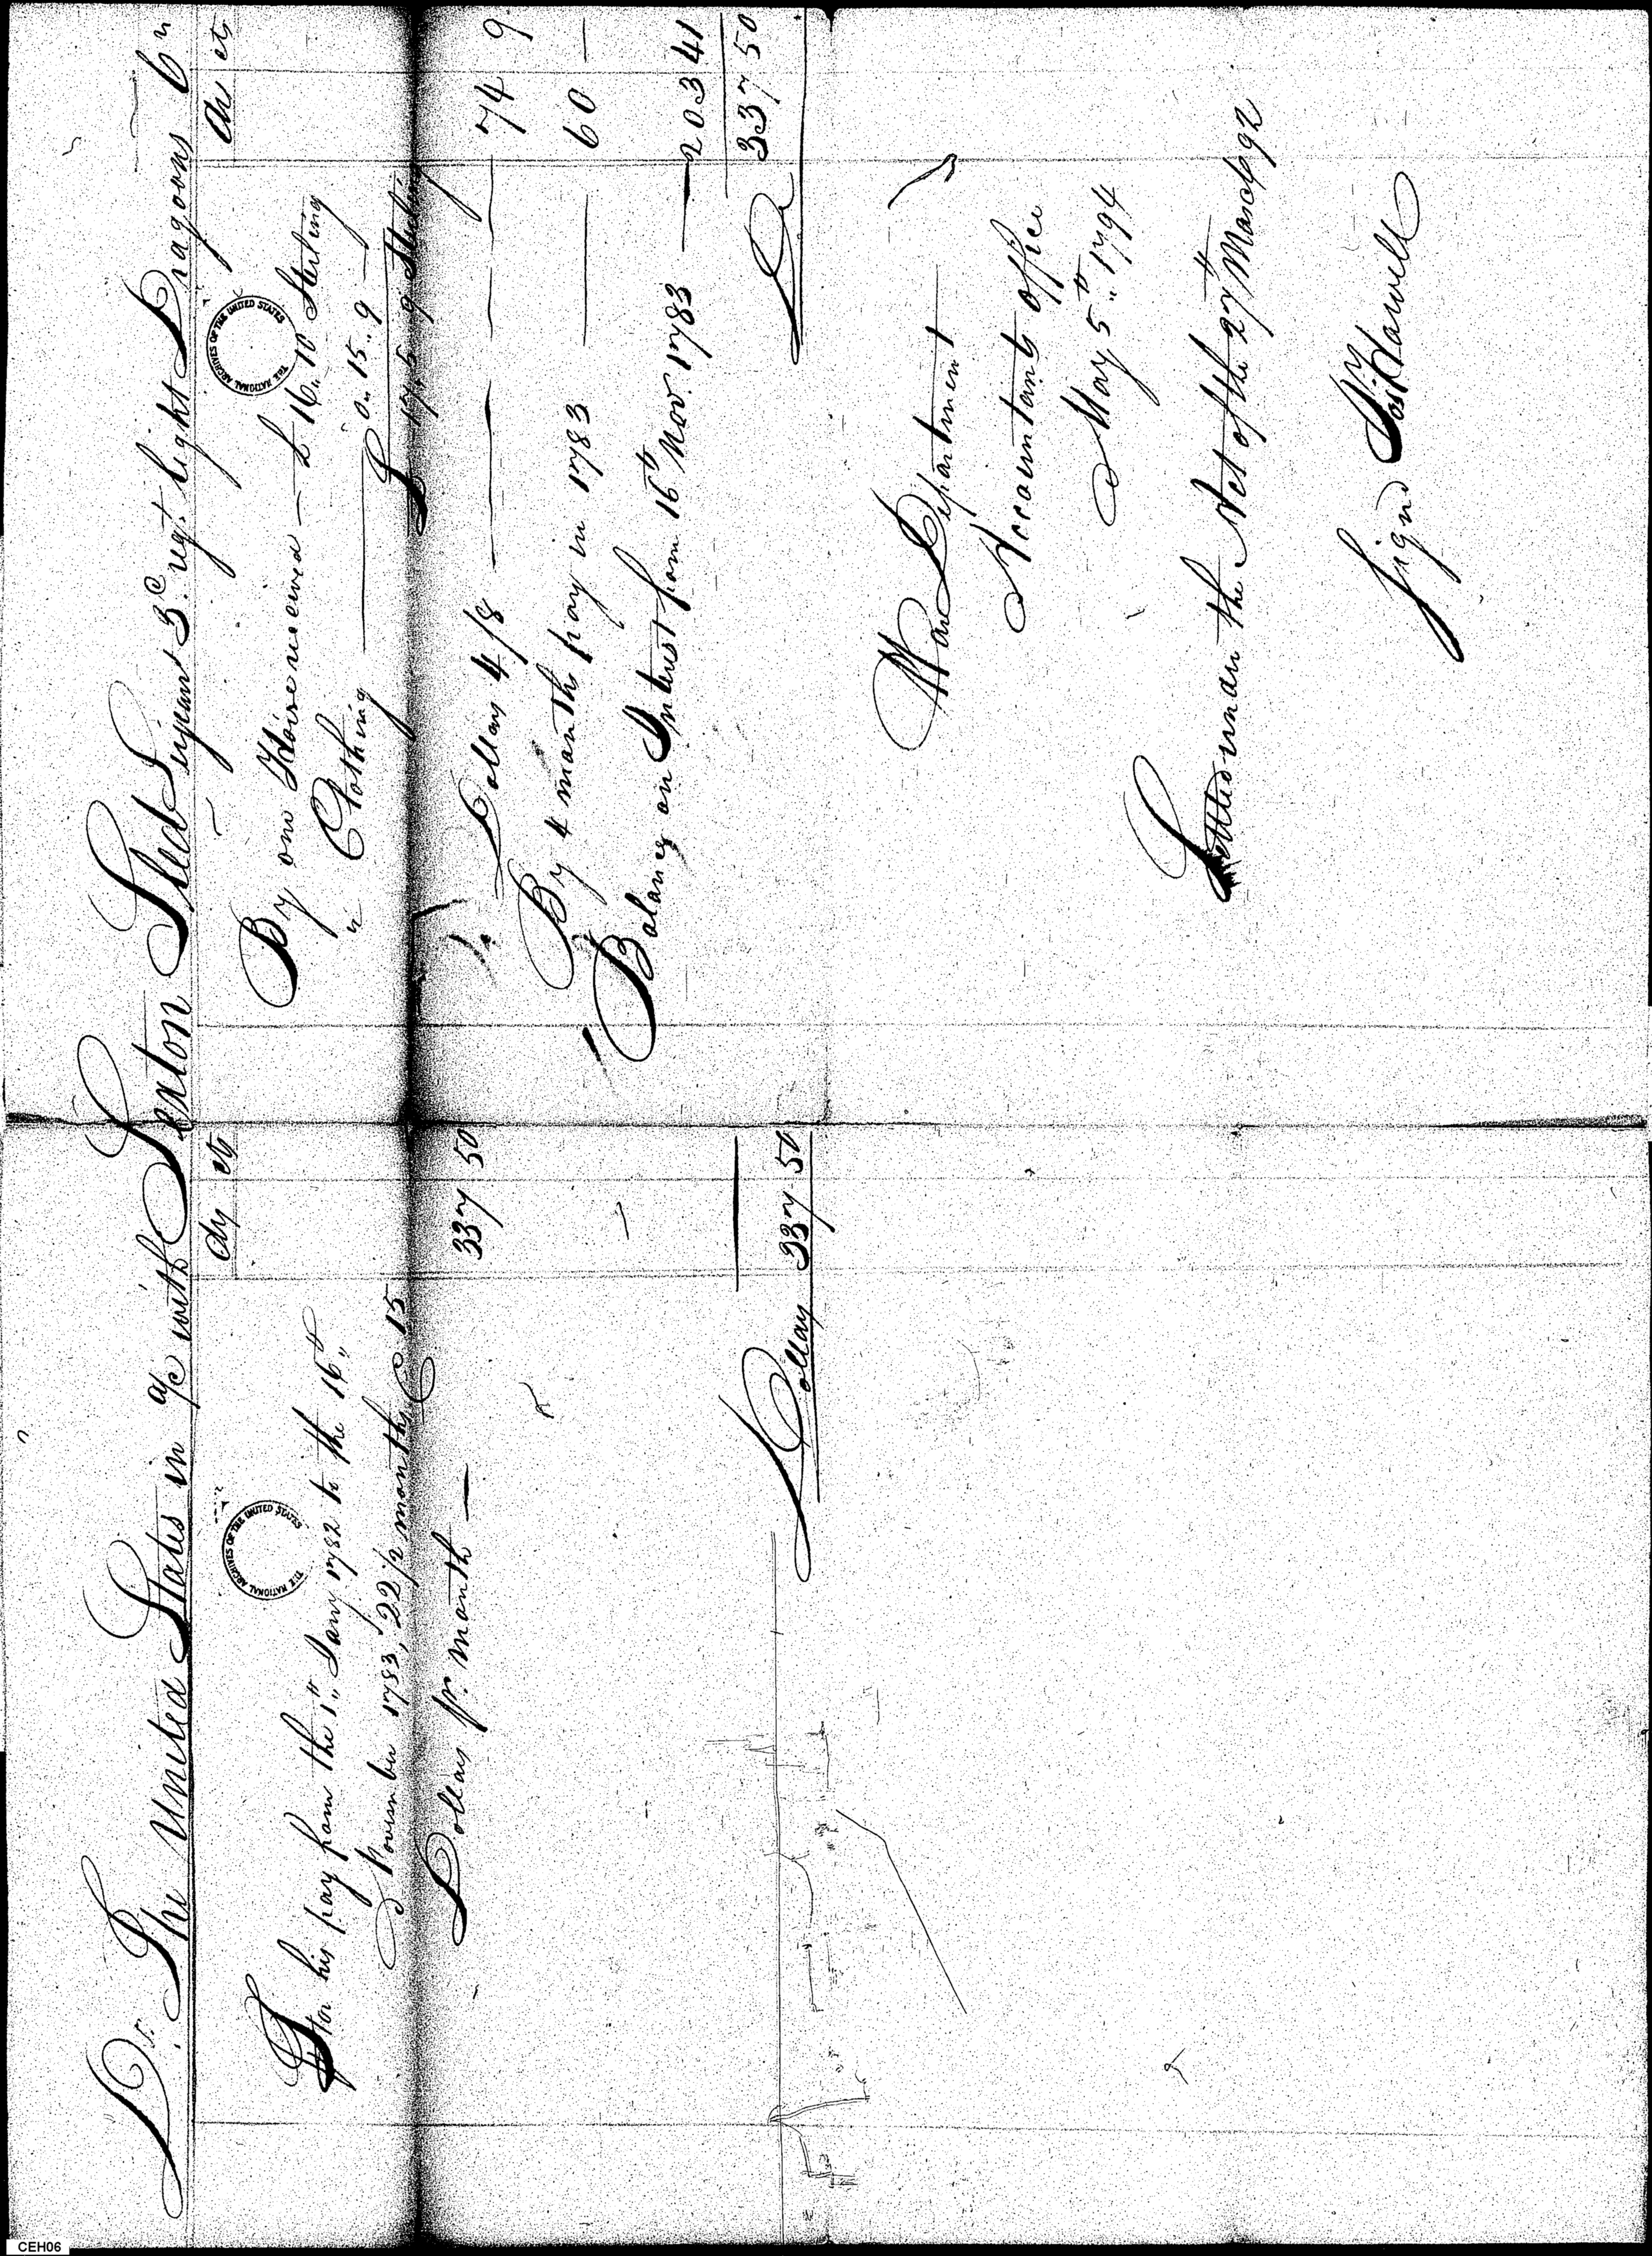 Dr. The United States in a/c with Sexton Sled Serjeant 3d. regt. light Dragoons Cr
dy cts
For his pay from the 1st Jany 1782 to the 16th
November 1783, 22 1/2 months @ 15
Dollars pr. month — 337 50
Dollars 337 50
dr cts
By one Horse received — £ 16,, 10 Sterling
" Clothing — 0,, 15,, 9 —
£ 17,, 5,, 9 Sterling
Dollars 4/8 — 74 9
By 4 months pay in 1783 — 60 —
Balance on Interest from 16th Nov. 1783 — 203 41
Dr 337 50
War Department
Accountants office
May 5th 1794
Settled under the Act of the 27th March 92
Signd Jos. Howell
THE NATIONAL ARCHIVES OF THE UNITED STATES
THE NATIONAL ARCHIVES OF THE UNITED STATES
CEH06